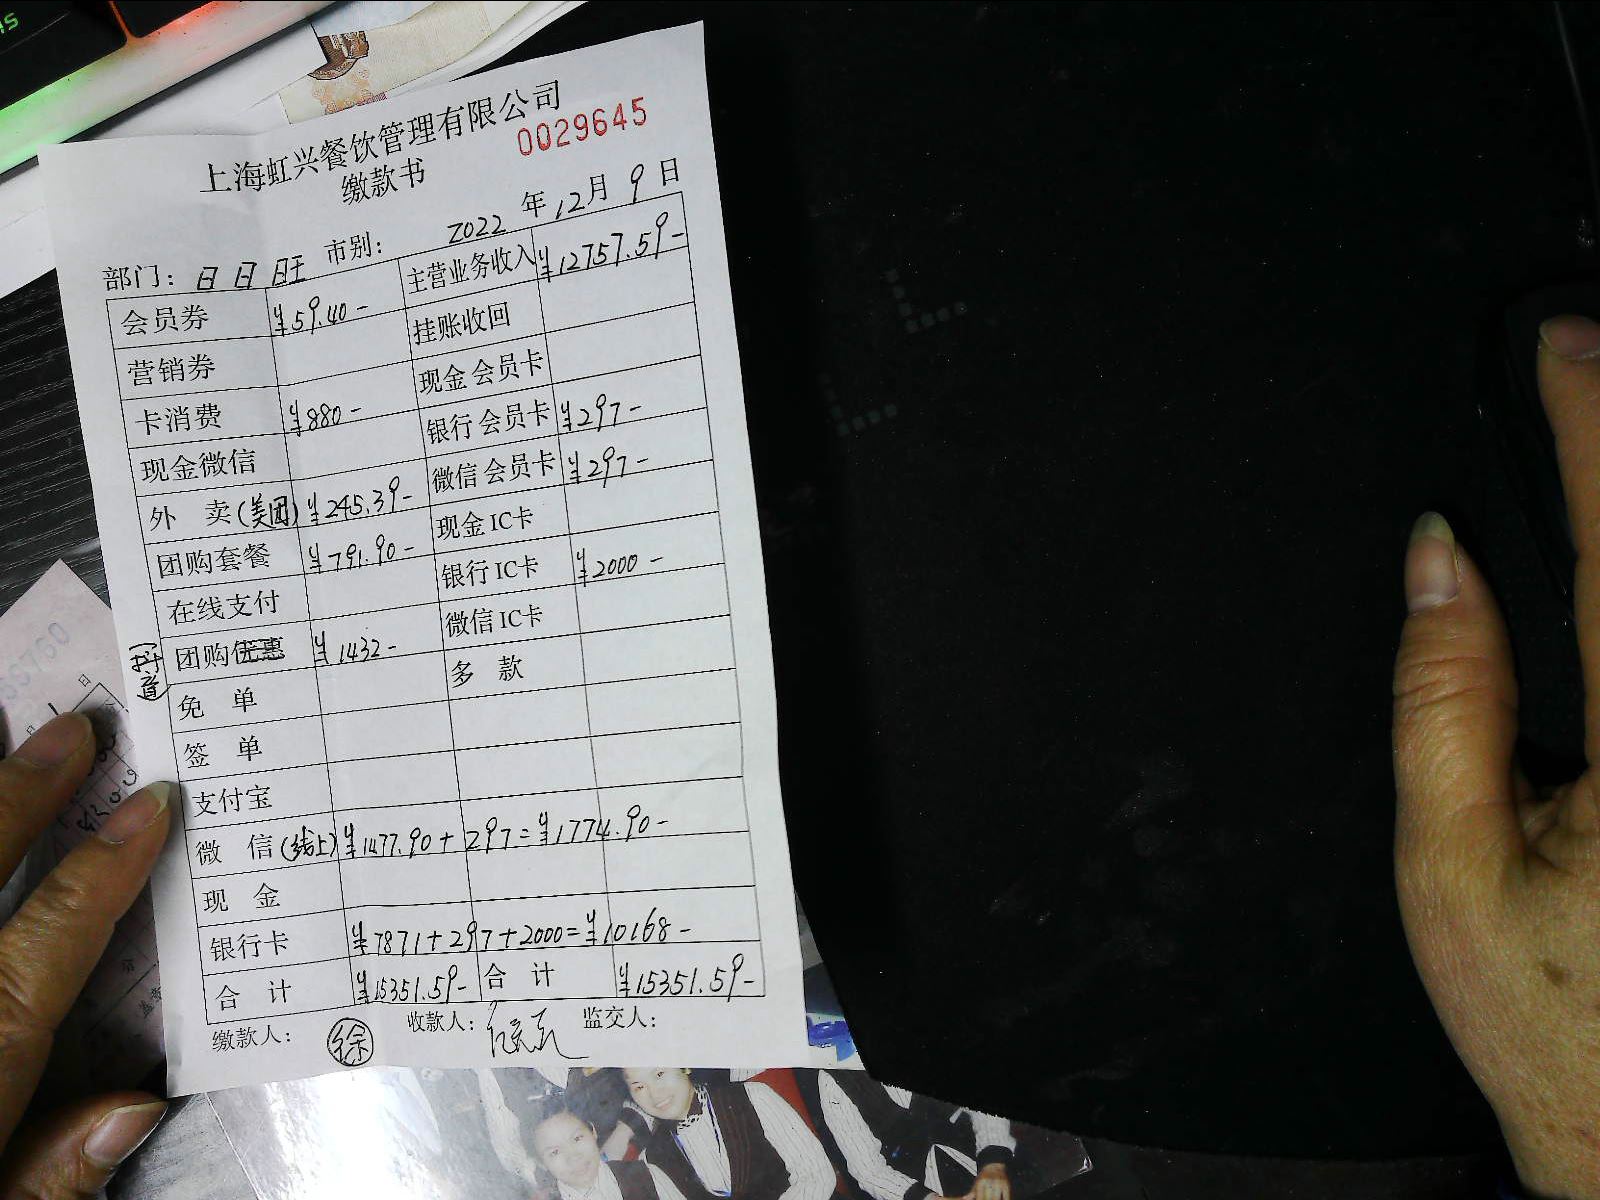 上海虹兴餐饮管理有限公司
0029645
缴款书
2022 年 12 月 9 日
部门: 日日旺 市别:
会员券 ¥59.40- 主营业务收入 ¥12757.59-
营销券 挂账收回
卡消费 ¥880- 现金会员卡
现金微信 银行会员卡 ¥297-
外 卖(美团) ¥245.39- 微信会员卡 ¥297-
团购套餐 ¥791.90- 现金IC卡
在线支付 银行IC卡 ¥2000-
(抖音) 团购优惠 ¥1432- 微信IC卡
免 单 多 款
签 单
支付宝
微 信(线上) ¥1477.90+297=¥1774.90-
现 金
银行卡 ¥7871+297+2000=¥10168-
合 计 ¥15351.59- 合 计 ¥15351.59-
缴款人: 徐 收款人: 监交人: